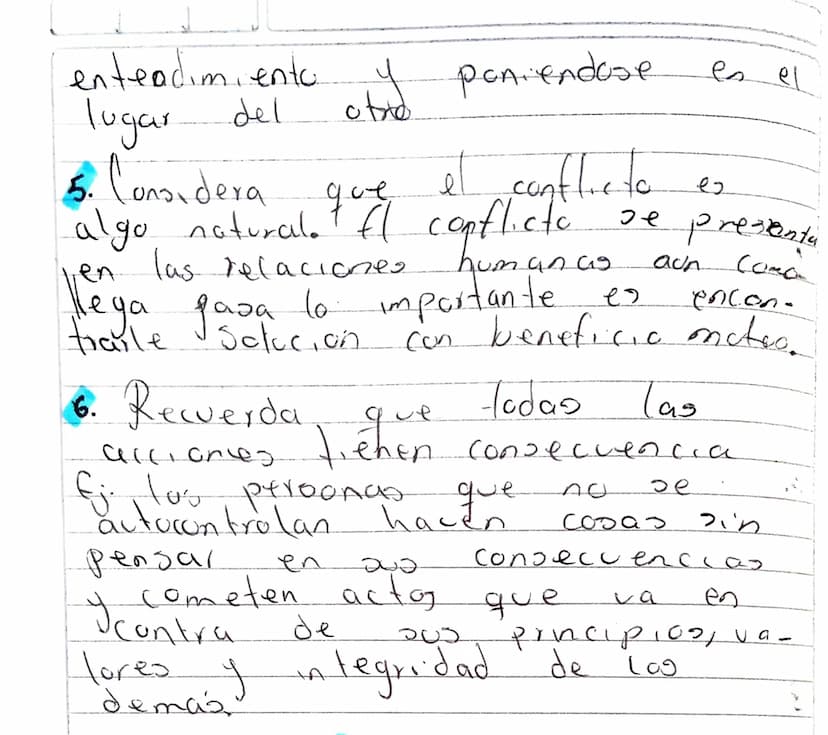 entendimiento y poniendose en el
lugar del otro
5. Considera que el conflicto es
algo natural. El conflicto se presenta
en las relaciones humanas aun como
llega pasa lo importante es encon-
trarle solucion con beneficio mutuo.
6. Recuerda que todas las
acciones tienen consecuencia
Ej. las personas que no se
autocontrolan hacen cosas sin
pensar en sus consecuencias
y cometen actos que va en
contra de sus principios, va-
lores y integridad de los
demás